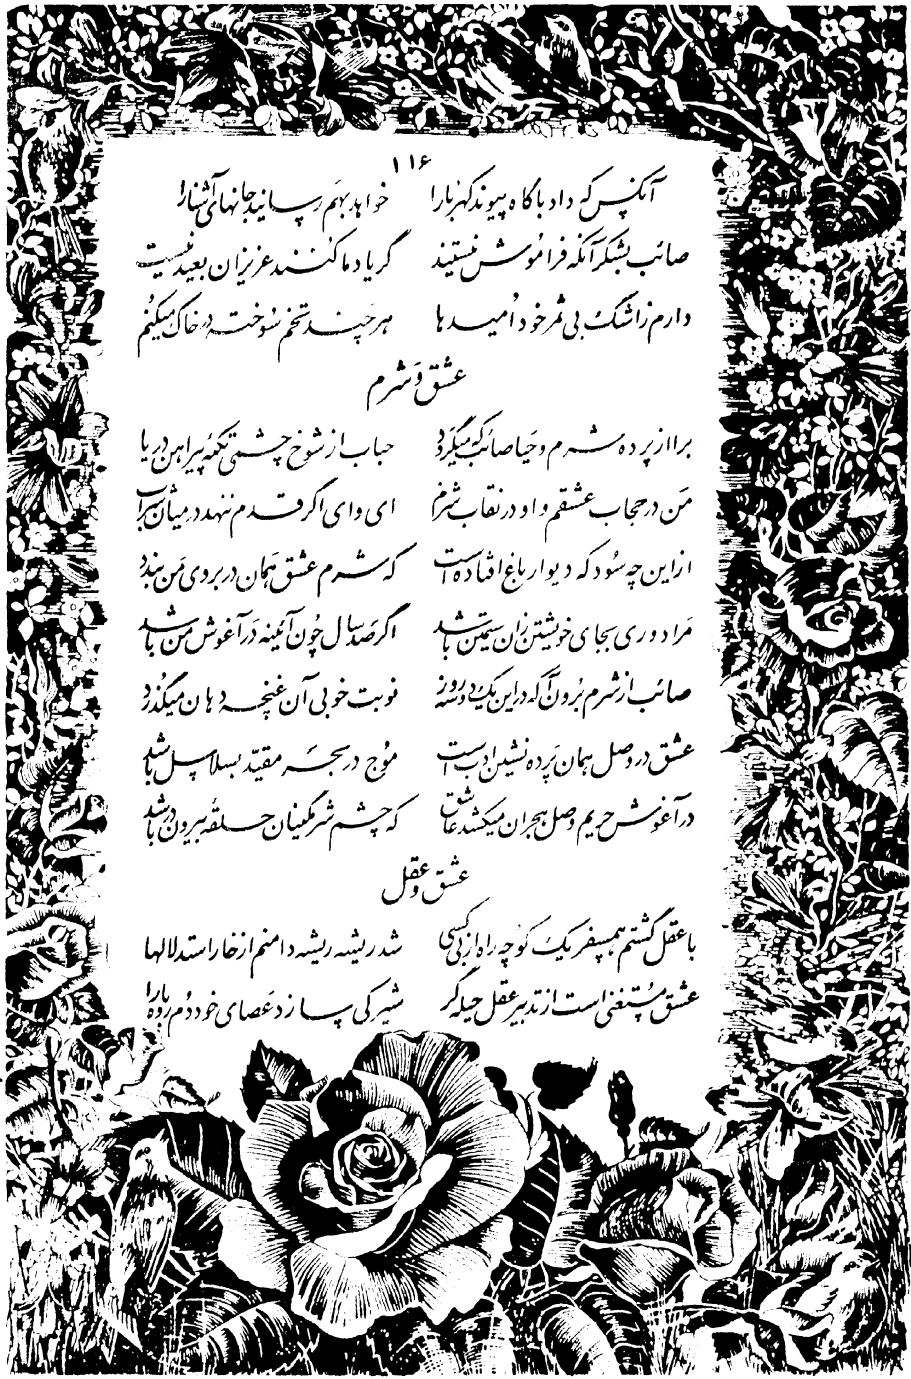 ۱۱۶
آنکس که داد با کاه پیوند کهربا را خواهد بهم رسانید جانهای آشنا را
صائب بشکر آنکه فراموش نیستند گر یاد ما کنند عزیزان بعید نیست
دارم ز اشک بی ثمر خود امیدها هر چند تخم سوخته در خاک میکنم
عشق و شرم
برا از پرده شرم و حیا صائب که میگردد حباب از شوخ چشمی تکمه پیراهن دریا
من در حجاب عشقم و او در نقاب شرم ای وای اگر قدم ننهد در میان شراب
از این چه سود که دیوار باغ افتاده است که شرم عشق همان در بروی من بندد
مرا دوری بجای خویشتن زان سیمتن باشد اگر صد سال چون آئینه در آغوش من باشد
صائب از شرم برون آ که در این یک دو سه روز نوبت خوبی آن غنچه دهان میگذرد
عشق در وصل همان پرده نشین ادب است موج در بحر مقید بسلاسل باشد
در آغوش حریم وصل هجران میکشد عاشق که چشم شرمگینان حلقه بیرون در باشد
عشق و عقل
با عقل گشتم همسفر یک کوچه راه از بی کسی شد ریشه ریشه دامنم از خار استدلالها
عشق مستغنی است از تدبیر عقل حیله گر شیر کی سازد عصای خود دم روباه را